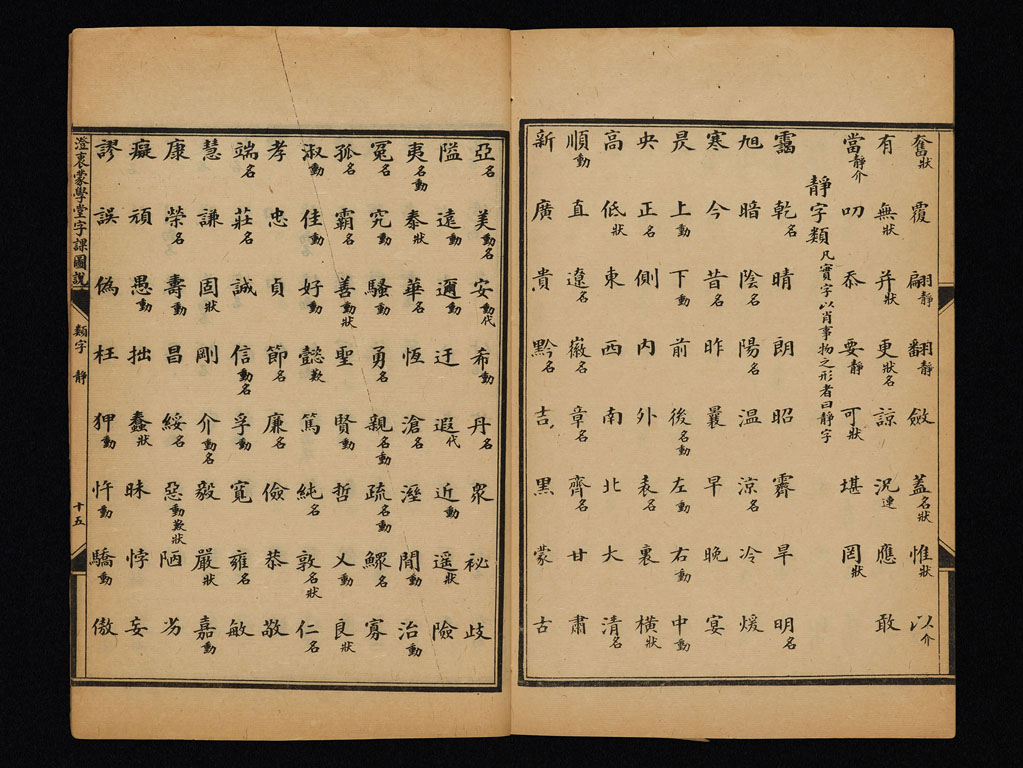 奮狀 覆 翩靜 翻靜 斂 蓋名狀 惟狀 以介
有 無狀 并狀 更狀名 諒 況連 應 敢
當靜介 叨 忝 要靜 可狀 堪 罔狀
靜字類 凡實字以肖事物之形者曰靜字
靄 乾名 晴 朗 昭 霽 旱 明名
旭 暗 陰名 陽名 温 涼名 冷 煖
寒 今 昔名 昨 曩 早 晚 宴
昃 上動 下動 前 後名動 左動 右動 中動
央 正名 側 內 外 表名 裏 橫狀
高 低狀 東 西 南 北 大 清名
順動 直 遼名 徽名 章名 齊名 甘 肅
新 廣 貴 黔名 吉 黑 蒙 古
亞名 美動名 安動代 希動 丹名 眾 祕 歧
隘 遠動 邇動 迂 遐代 近動 遥狀 險
夷名動 泰狀 華名 恆 滄名 溼 閒動 治動
冤名 究動 騷動 勇名 親名動 疏名動 鰥名 寡
孤名 霸名 善動狀 聖 賢動 哲 乂動 良狀
淑動 佳動 好動 懿歎 篤 純名 敦名狀 仁名
孝 忠 貞 節名 廉名 儉 恭 敬
端名 莊名 誠 信動名 孚動 寬 雍名 敏
慧 謙 固狀 剛 介動名 毅 嚴狀 嘉動
康 榮名 壽動 昌 綏名 惡動歎狀 陋 劣
癡 頑 愚動 拙 蠢狀 昧 悖 妄
謬 誤 偽 枉 狎動 忤動 驕動 傲
澄衷蒙學堂字課圖說
類字 靜
十五